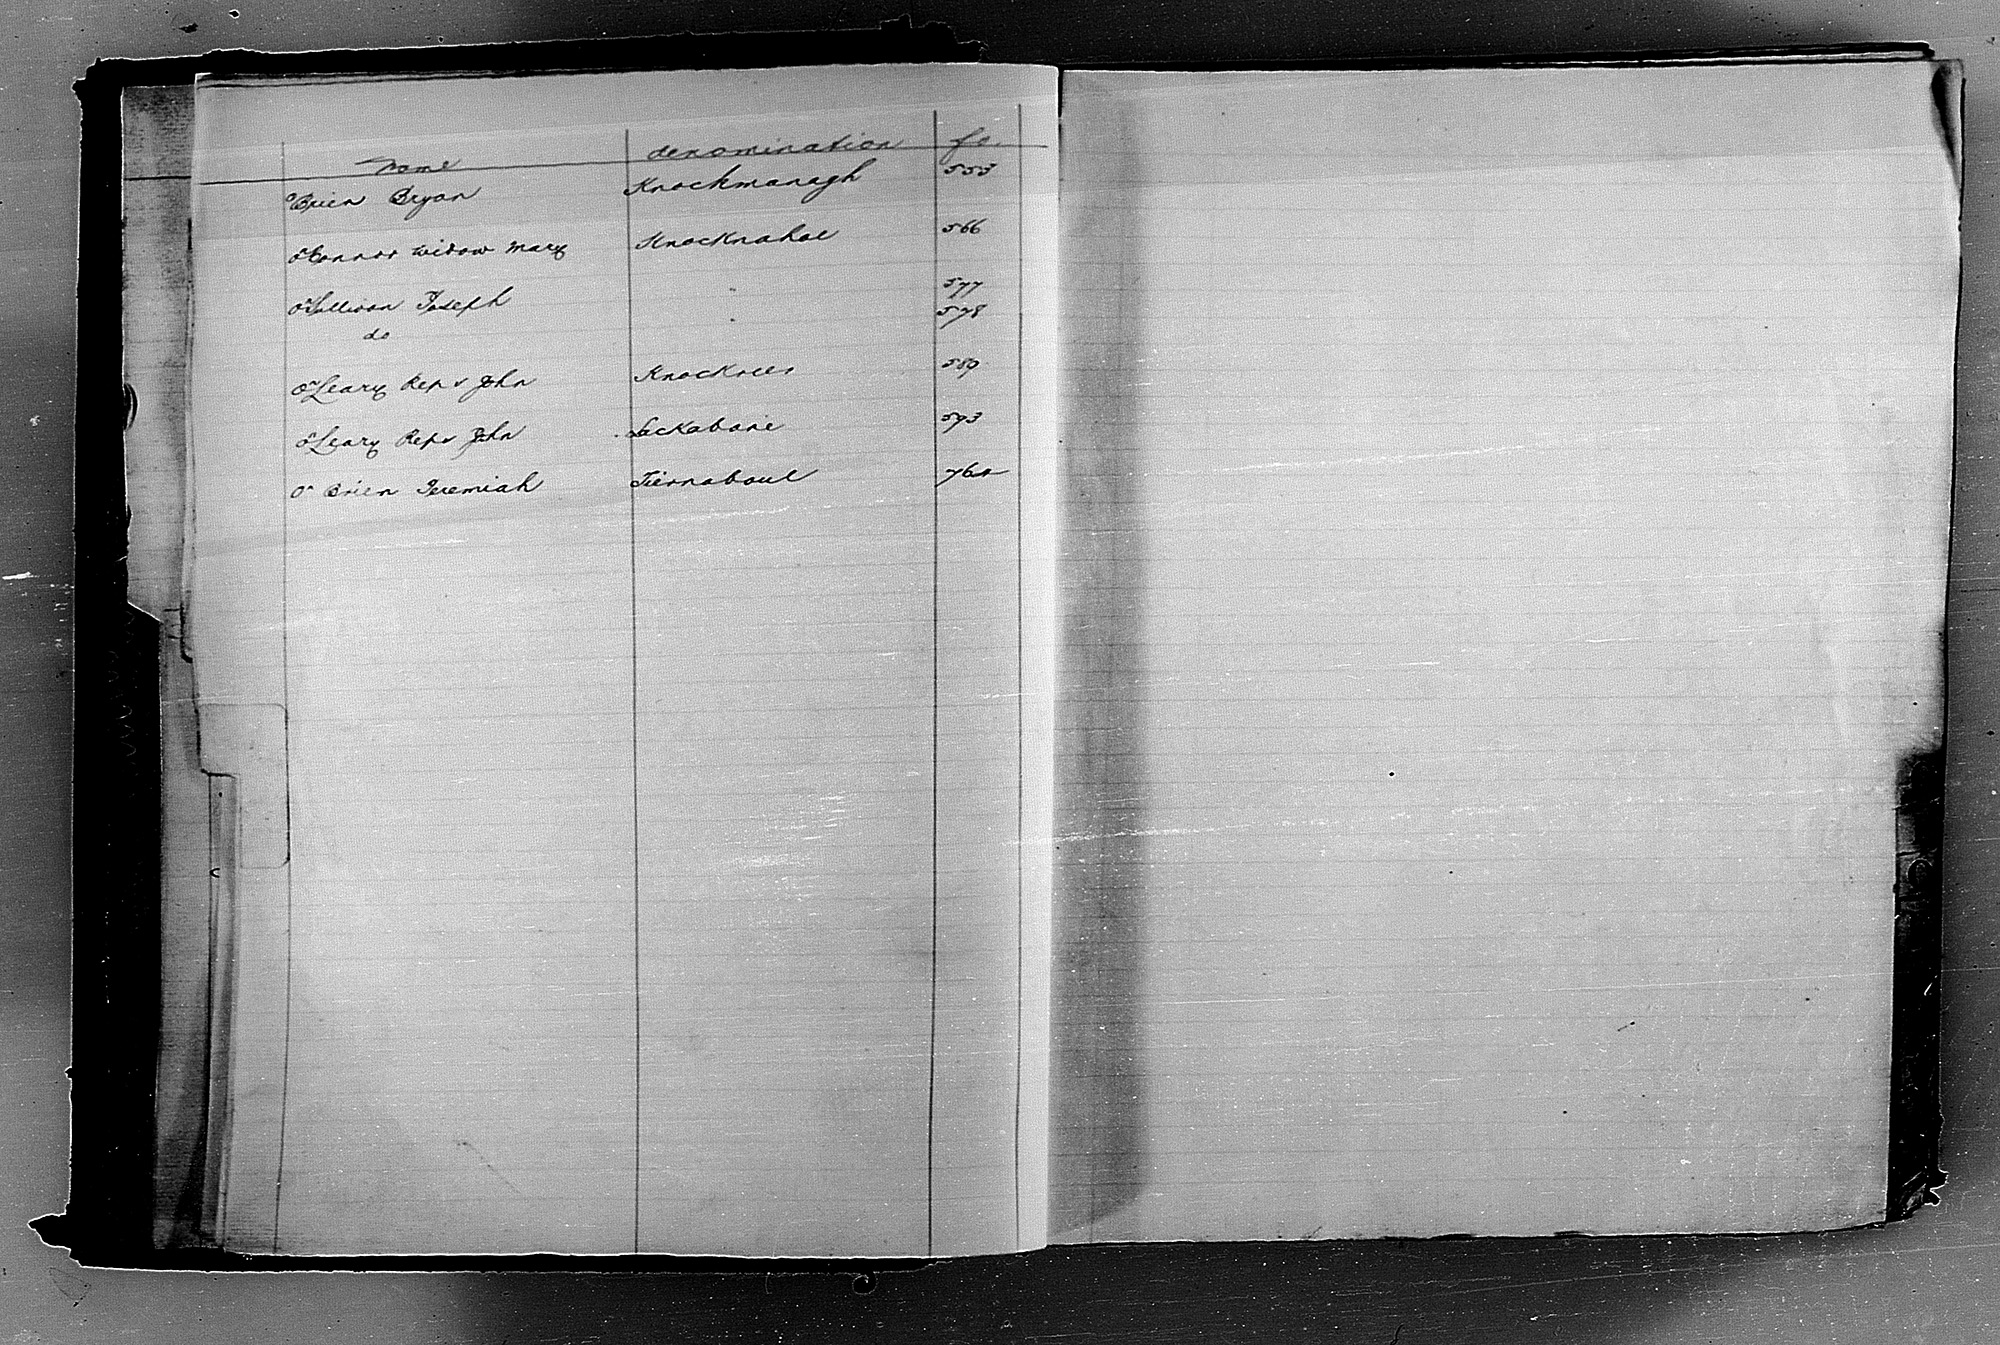 Name denomination fo.
O'Brien Bryan Knockmanagh 553
O'Connor Widow Mary Knocknahoe 566
O'Sullivan Joseph " 577
do 578
O'Leary Reps John Knockrees 589
O'Leary Reps John Lackabane 593
O'Brien Jeremiah Tiernaboul